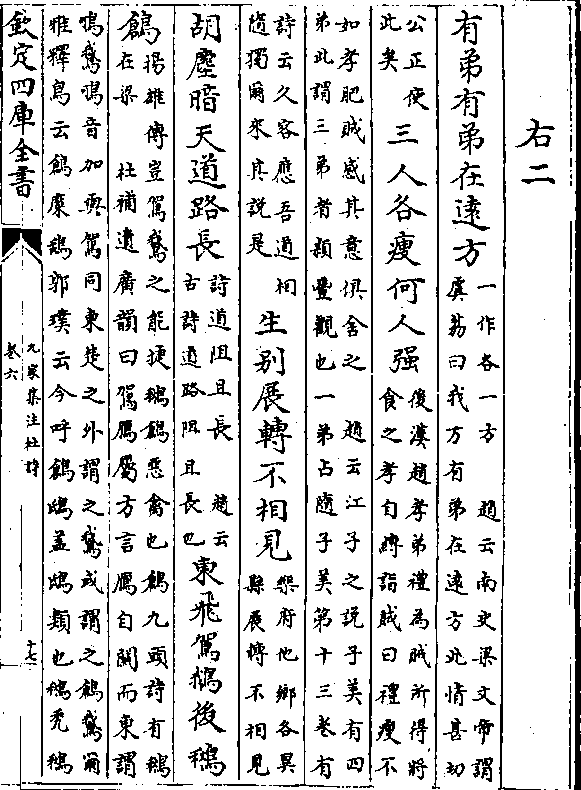 右二
有弟有弟在遠方
一作各一方　趙云南史梁文帝謂
虞荔曰我方有弟在遠方此情甚切
公正使
此矣
三人各瘦何人强
後漢趙孝弟禮為賊所得將
食之孝自縛詣賊曰禮瘦不
如孝肥賊感其意俱舍之　趙云江子之説子美有四
弟此謂三弟者穎豐觀也一弟占隨子美第十三卷有
詩云久客應吾道相
隨獨爾來其説是
生别展轉不相見
樂府他鄉各異
縣展轉不相見
胡塵暗天道路長
詩道阻且長　趙云
古詩道路阻且長也
東飛駕鵝後鶖
鶬
揚雄傳豈駕鵝之能捷鶖鶬惡禽也鶬九頭詩有鶖
在梁　杜補遺廣韻曰駕鴈屬方言鴈自關而東謂
鳴鵝鳴音加與駕同東楚之外謂之鵝或謂之鶬鵝爾
雅釋鳥云鶬麋鴰郭璞云今呼鶬鴰盖鴰類也鶖禿鶖
欽定四庫全書
九家集注杜詩
卷六
十七